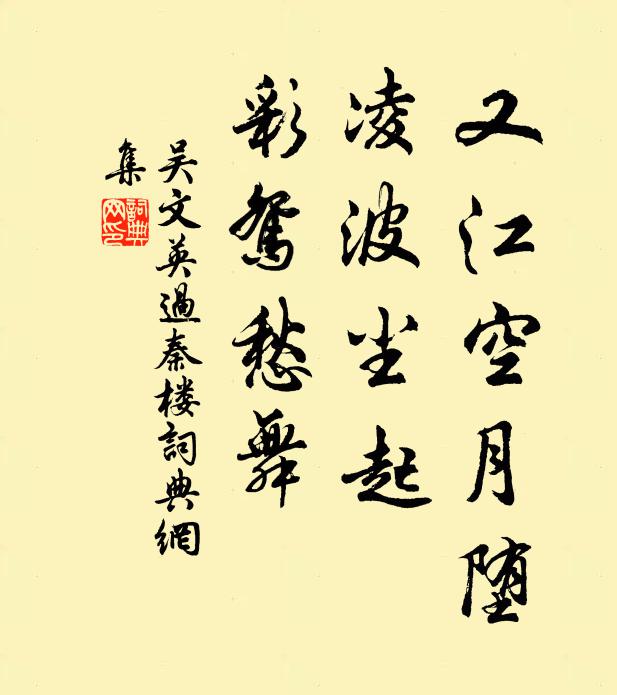 又江空月堕
凌波尘起
彩鸳愁舞
吴文英過秦楼詞典網
集
詞典
网印